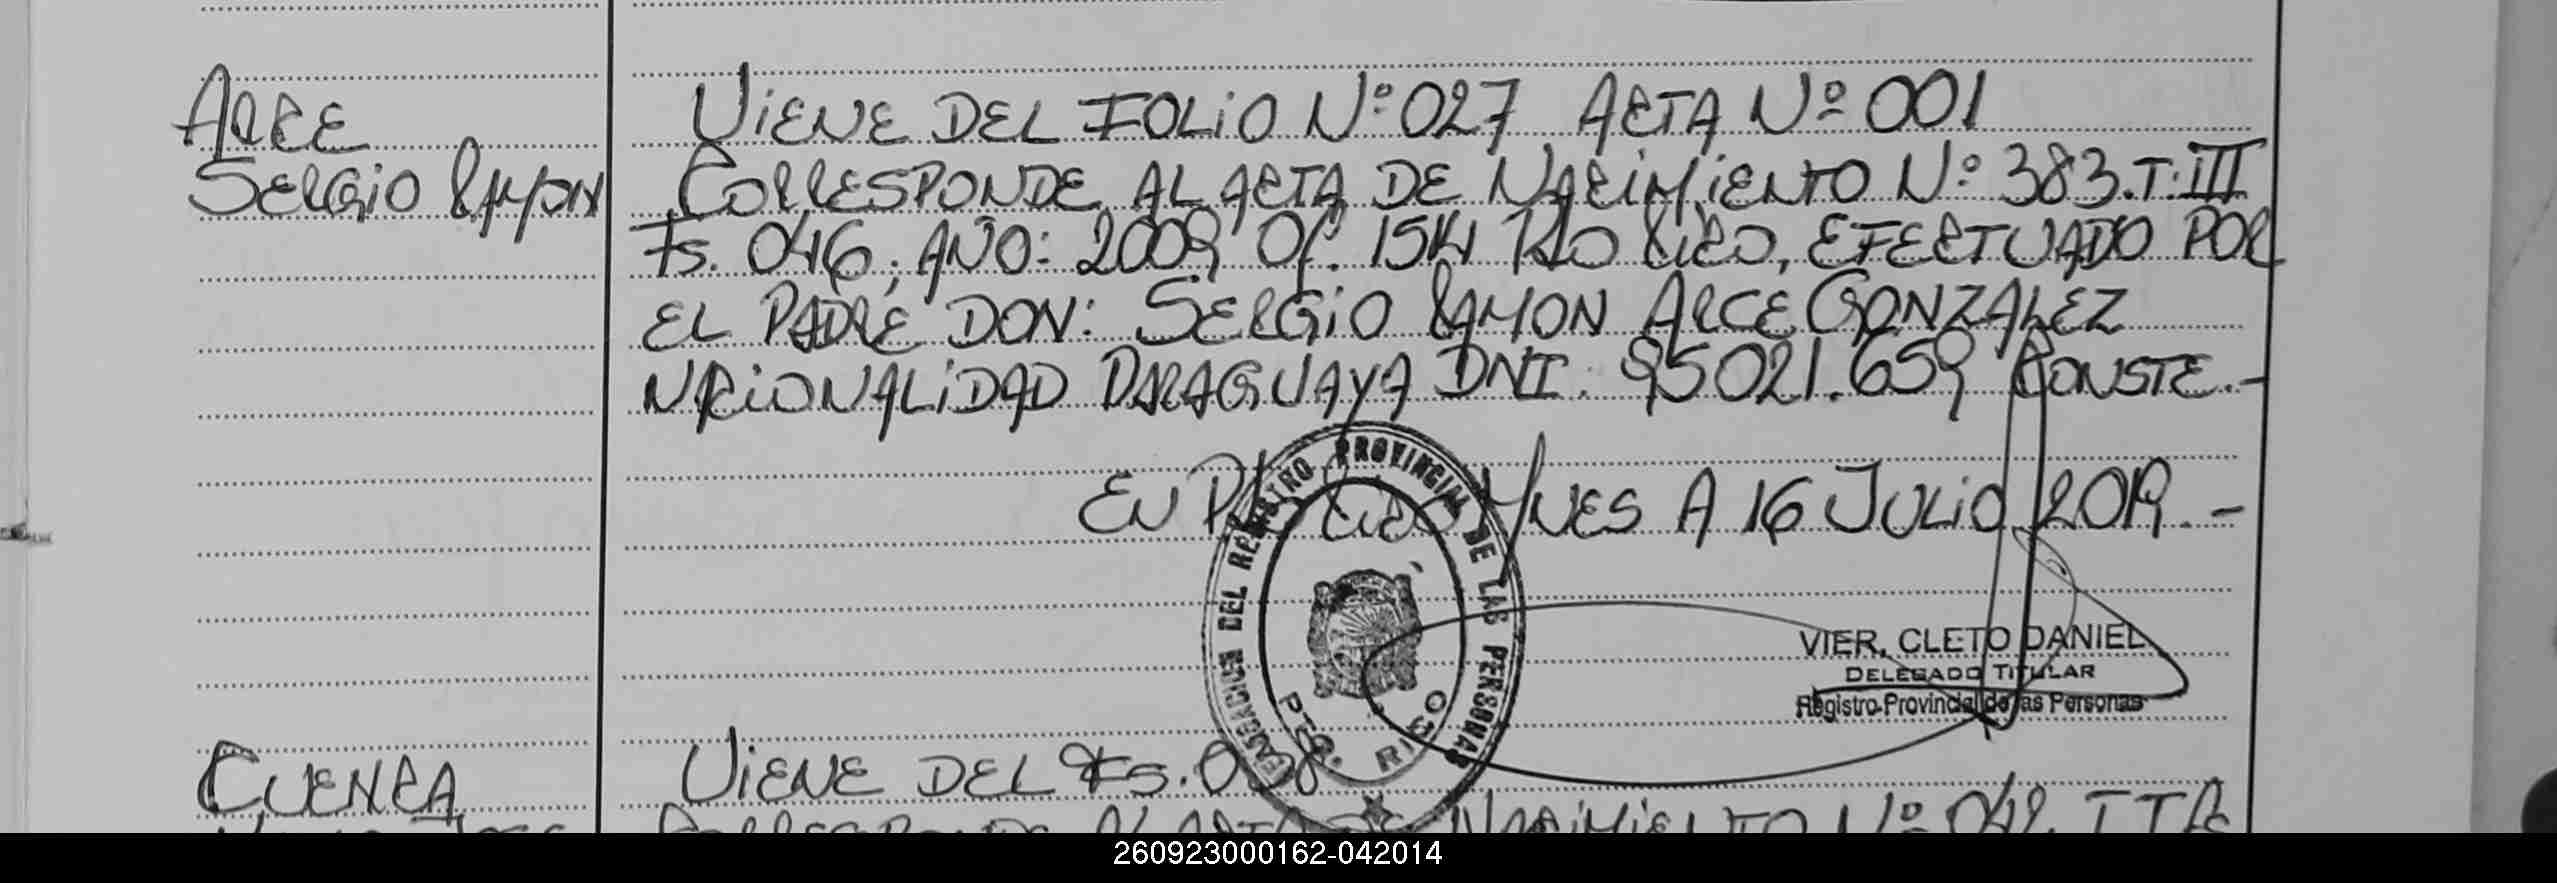 ARCE
SERGIO RAMON
VIENE DEL FOLIO Nº 027 ACTA Nº 001
CORRESPONDE AL ACTA DE NACIMIENTO Nº 383.T.III
Fs. 046. AÑO: 2009 Of. 1514 Pto RICO, EFECTUADO POR
EL PADRE DON: SERGIO RAMON ARCE GONZALEZ
NACIONALIDAD PARAGUAYA DNI: 95021.659 CONSTE.-
EN Pto RICO Mnes A 16 JULIO 2019.-
DELEGACION DEL REGISTRO PROVINCIAL DE LAS PERSONAS
PTO. RICO
VIER, CLETO DANIEL
DELEGADO TITULAR
Registro Provincial de las Personas
CUENCA
VIENE DEL Fs. 038
CORRESPONDE AL ACTA DE NACIMIENTO Nº
260923000162-042014